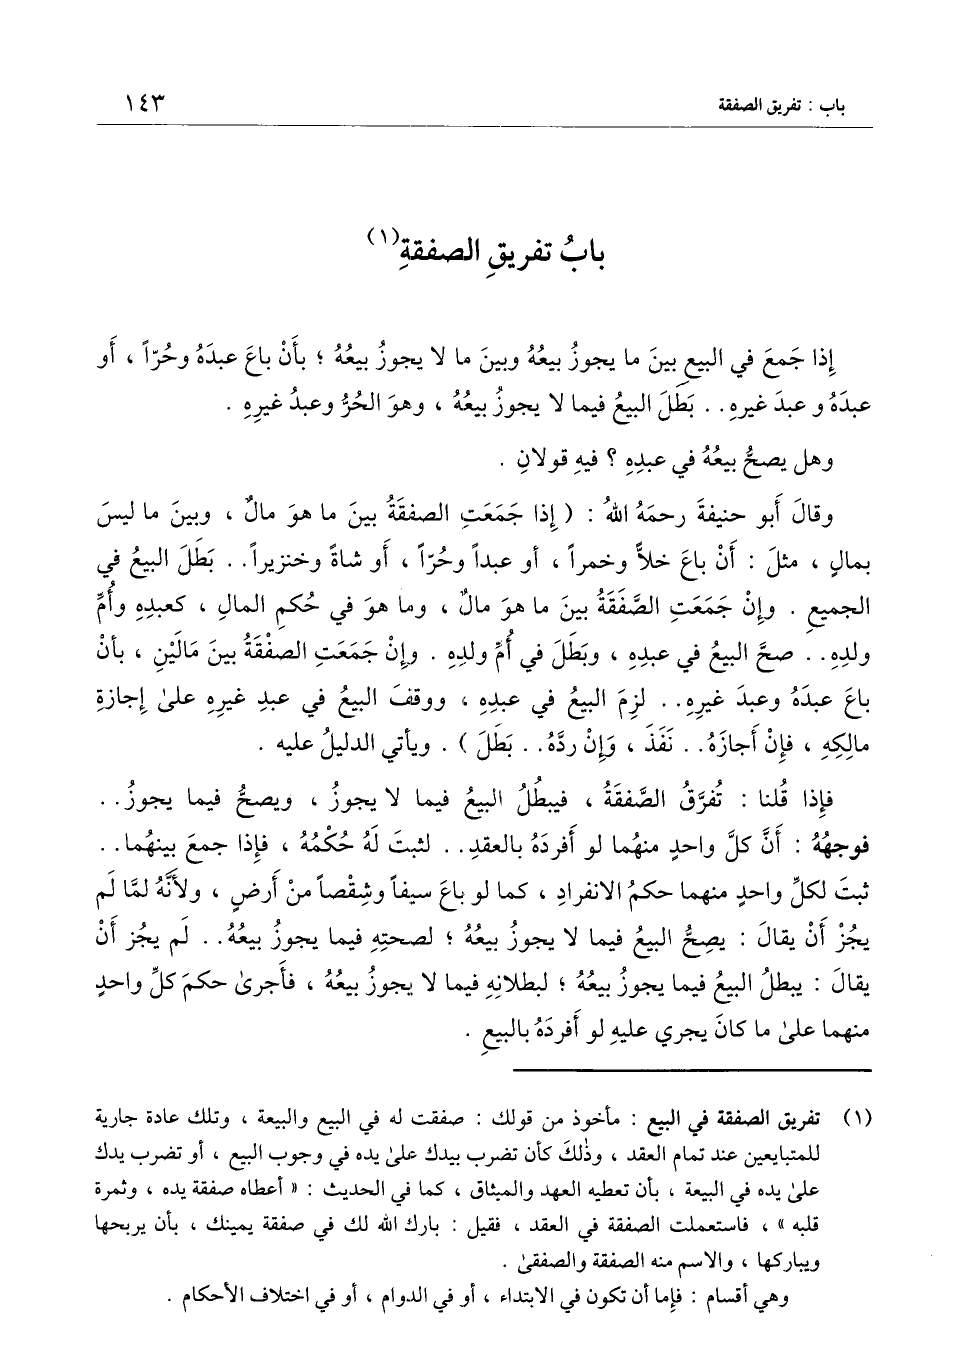 باب : تفريق الصفقة
١٤٣
بابُ تفريقِ الصفقةِ(١)
إِذا جَمعَ في البيعِ بينَ ما يجوزُ بيعُهُ وبينَ ما لا يجوزُ بيعُهُ ؛ بأَنْ باعَ عبدَهُ وحُرّاً ، أَو
عبدَهُ و عبدَ غيرهِ . . بَطَلَ البيعُ فيما لا يجوزُ بيعُهُ ، وهوَ الحُرُّ وعبدُ غيرِهِ .
وهل يصحُّ بيعُهُ في عبدِهِ ؟ فيهِ قولانِ .
وقالَ أَبو حنيفةَ رحمَهُ اللهُ : ( إِذا جَمَعَتِ الصفقَةُ بينَ ما هوَ مالٌ ، وبينَ ما ليسَ
بمالٍ ، مثلَ : أَنْ باعَ خلاًّ وخمراً ، أو عبداً وحُرّاً ، أَو شاةً وخنزيراً . . بَطَلَ البيعُ في
الجميعِ . وإِنْ جَمَعَتِ الصَّفَقَةُ بينَ ما هوَ مالٌ ، وما هوَ في حُكمِ المالِ ، كعبدِهِ وأُمِّ
ولدِهِ . . صحَّ البيعُ في عبدِهِ ، وبَطَلَ في أُمِّ ولدِهِ . وإِنْ جَمَعَتِ الصفْقَةُ بينَ مَالَيْنِ ، بأنْ
باعَ عبدَهُ وعبدَ غيرِهِ . . لزِمَ البيعُ في عبدِهِ ، ووقفَ البيعُ في عبدِ غيرِهِ علىٰ إِجازةِ
مالكِهِ ، فإِنْ أَجازَهُ . . نَفَذَ ، وَإِنْ ردَّهُ . . بَطَلَ ) . ويأتي الدليلُ عليه .
فإِذا قُلنا : تُفرَّقُ الصَّفقةُ ، فيبطُلُ البيعُ فيما لا يجوزُ ، ويصحُّ فيما يجوزُ . .
فوجهُهُ : أَنَّ كلَّ واحدٍ منهُما لو أَفردَهُ بالعقدِ . . لثبتَ لَهُ حُكْمُهُ ، فإِذا جمعَ بينهُما . .
ثبتَ لكلِّ واحدٍ منهما حكمُ الانفرادِ ، كما لو باعَ سيفاً وشِقْصاً منْ أَرضٍ ، ولأَنَّهُ لمَّا لم
يجُزْ أَنْ يقالَ : يصِحُّ البيعُ فيما لا يجوزُ بيعُهُ ؛ لصحتِهِ فيما يجوزُ بيعُهُ . . لَم يجُز أَنْ
يقالَ : يبطلُ البيعُ فيما يجوزُ بيعُهُ ؛ لبطلانِهِ فيما لا يجوزُ بيعُهُ ، فأَجرىٰ حكمَ كلِّ واحدٍ
منهما علىٰ ما كانَ يجري عليهِ لو أَفردَهُ بالبيعِ .
(١) تفريق الصفقة في البيع : مأخوذ من قولك : صفقت له في البيع والبيعة ، وتلك عادة جارية
للمتبايعين عند تمام العقد ، وذٰلكَ كأن تضرب بيدك علىٰ يده في وجوب البيع ، أو تضرب يدك
علىٰ يده في البيعة ، بأن تعطيه العهد والميثاق ، كما في الحديث : « أعطاه صفقة يده ، وثمرة
قلبه » ، فاستعملت الصفقة في العقد ، فقيل : بارك الله لك في صفقة يمينك ، بأن يربحها
ويباركها ، والاسم منه الصفقة والصفقىٰ .
وهي أقسام : فإما أن تكون في الابتداء ، أو في الدوام ، أو في اختلاف الأحكام .